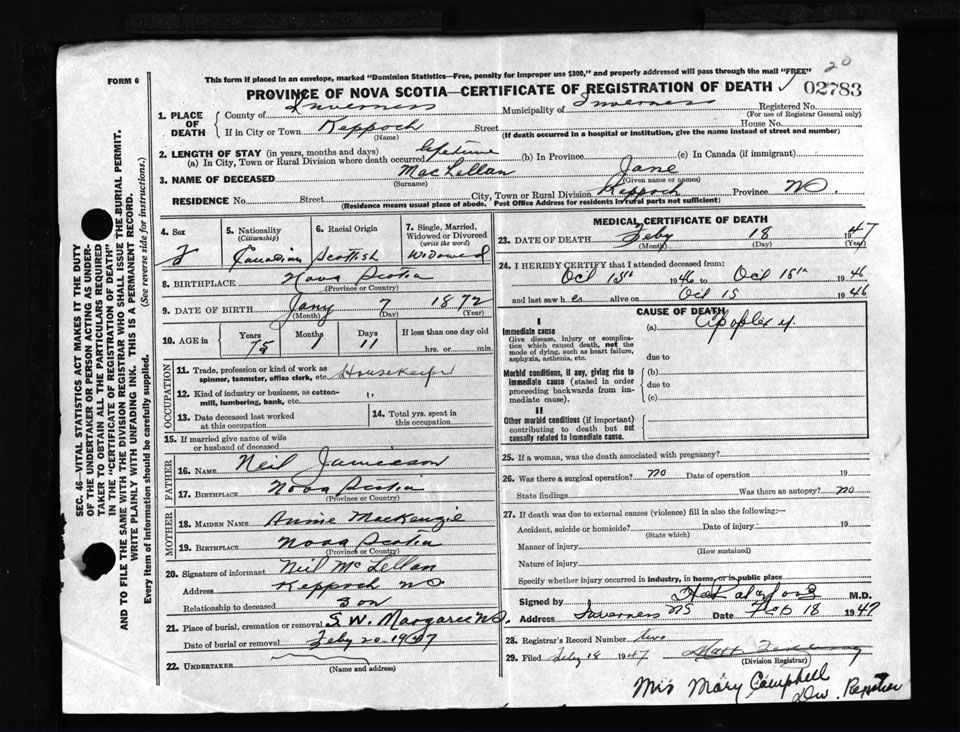 20
This form if placed in an envelope, marked "Dominion Statistics—Free, penalty for improper use $300," and properly addressed will pass through the mail "FREE"
FORM 6
PROVINCE OF NOVA SCOTIA—CERTIFICATE OF REGISTRATION OF DEATH
02783
1. PLACE OF DEATH
County of Inverness Municipality of Inverness Registered No.
(For use of Registrar General only)
If in City or Town Keppoch Street House No.
(Name) (If death occurred in a hospital or institution, give the name instead of street and number)
2. LENGTH OF STAY (in years, months and days)
(a) In City, Town or Rural Division where death occurred lifetime (b) In Province (c) In Canada (if immigrant)
3. NAME OF DECEASED MacLellan Jane
(Surname) (Given name or names)
RESIDENCE No. Street City, Town or Rural Division Keppoch Province NS.
(Residence means usual place of abode. Post Office Address for residents in rural parts not sufficient)
4. Sex 5. Nationality (Citizenship) 6. Racial Origin 7. Single, Married, Widowed or Divorced (write the word)
F Canadian Scottish Widowed
8. BIRTHPLACE Nova Scotia
(Province or Country)
9. DATE OF BIRTH Jany 7 1872
(Month) (Day) (Year)
10. AGE in Years Months Days If less than one day old
75 1 11 hrs. or min.
OCCUPATION
11. Trade, profession or kind of work as spinner, teamster, office clerk, etc. Housekeeper
12. Kind of industry or business, as cotton-mill, lumbering, bank, etc. "
13. Date deceased last worked at this occupation
14. Total yrs. spent in this occupation
15. If married give name of wife or husband of deceased
FATHER
16. NAME Neil Jameson
17. BIRTHPLACE Nova Scotia
(Province or Country)
MOTHER
18. MAIDEN NAME Annie MacKenzie
19. BIRTHPLACE Nova Scotia
(Province or Country)
20. Signature of informant Neil McLellan
Address Keppoch NS
Relationship to deceased Son
21. Place of burial, cremation or removal S.W. Margaree NS.
Date of burial or removal Feby 20 1947
22. UNDERTAKER
(Name and address)
MEDICAL CERTIFICATE OF DEATH
23. DATE OF DEATH Feby 18 1947
(Month) (Day) (Year)
24. I HEREBY CERTIFY that I attended deceased from:
Oct 15th 1946 to Oct 15th 1946
and last saw her alive on Oct 15 1946
CAUSE OF DEATH
I
Immediate cause
Give disease, injury or complication which caused death, not the mode of dying, such as heart failure, asphyxia, asthenia, etc.
(a) Apoplexy.
due to
Morbid conditions, if any, giving rise to immediate cause (stated in order proceeding backwards from immediate cause).
(b)
due to
(c)
II
Other morbid conditions (if important) contributing to death but not causally related to immediate cause.
25. If a woman, was the death associated with pregnancy?
26. Was there a surgical operation? no Date of operation 19
State findings Was there an autopsy? no
27. If death was due to external causes (violence) fill in also the following:—
Accident, suicide or homicide? Date of injury 19
(State which)
Manner of injury
(How sustained)
Nature of injury
Specify whether injury occurred in industry, in home, or in public place
Signed by M.D.
Address Inverness NS Date Feb 18 1947
28. Registrar's Record Number two
29. Filed Feby 18 1947
(Division Registrar)
Mrs Mary Campbell
Div.
SEC. 46—VITAL STATISTICS ACT MAKES IT THE DUTY
OF THE UNDERTAKER OR PERSON ACTING AS UNDERTAKER TO OBTAIN ALL THE PARTICULARS REQUIRED
IN THE "CERTIFICATE OF REGISTRATION OF DEATH"
AND TO FILE THE SAME WITH THE DIVISION REGISTRAR WHO SHALL ISSUE THE BURIAL PERMIT.
WRITE PLAINLY WITH UNFADING INK. THIS IS A PERMANENT RECORD.
Every item of information should be carefully supplied. (See reverse side for instructions.)